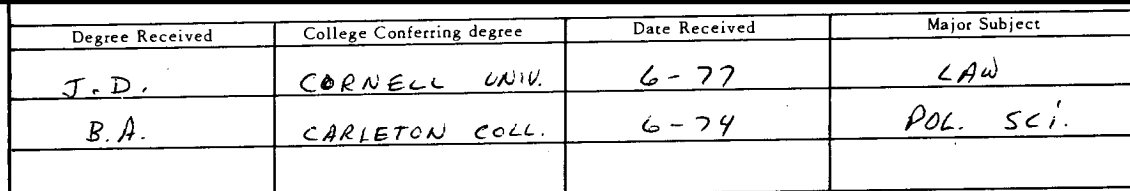 Degree Received College Conferring degree Date Received Major Subject
J.D. CORNELL UNIV. 6-77 LAW
B.A. CARLETON COLL. 6-74 POL. SCI.